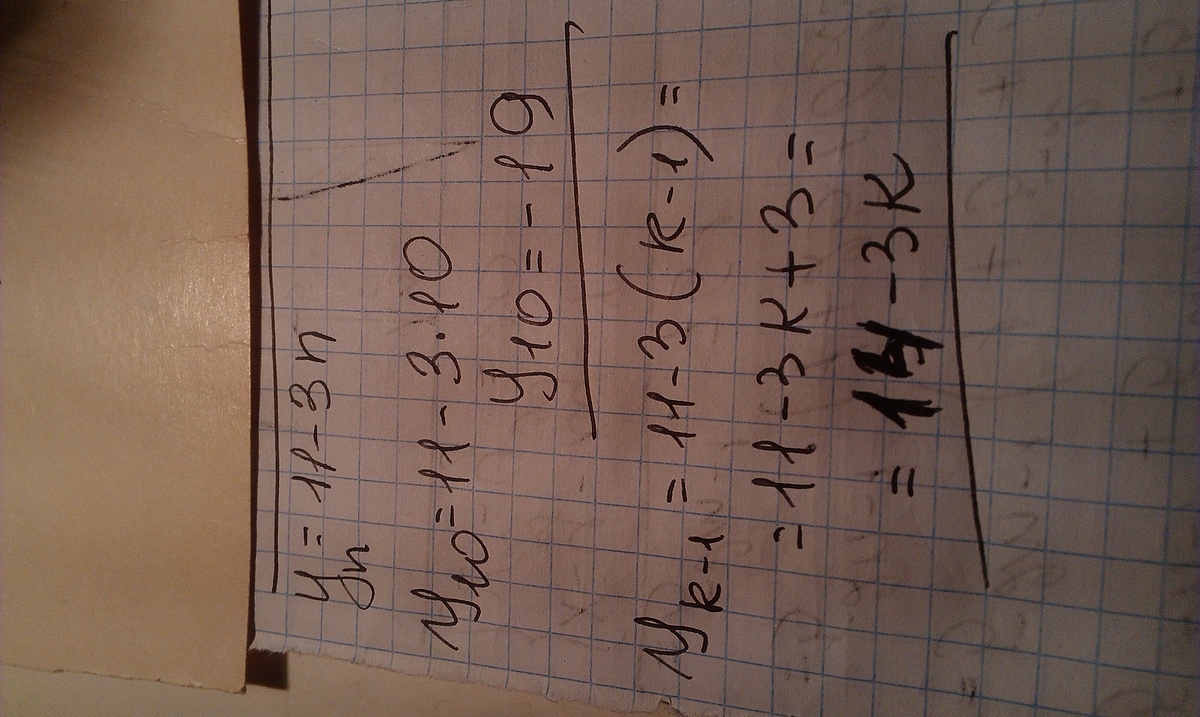 yₙ = 11 - 3n
y₁₀ = 11 - 3·10
y₁₀ = -19
yₖ₋₁ = 11 - 3(k-1) =
= 11 - 3k + 3 =
= 14 - 3k